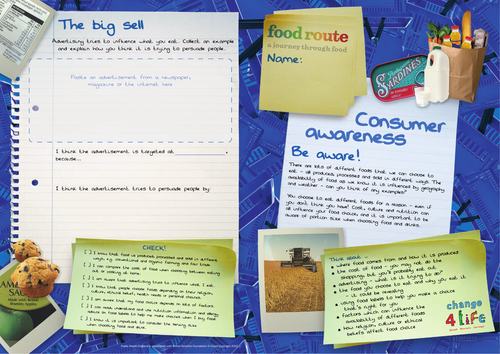 The big sell
Advertising tries to influence what you eat. Collect an example
and explain how you think it is trying to persuade people.
Paste an advertisement from a newspaper,
magazine or the internet here
I think the advertisement is targeted at
because...
I think the advertisement tries to persuade people by:
CHECK!
[ ] I know that food is produced, processed and sold in different
ways, e.g. conventional and organic farming and fair trade.
[ ] I can compare the cost of food when choosing between eating
out or cooking at home.
[ ] I am aware that advertising tries to influence what I eat.
[ ] I know that people choose foods depending on their religion,
ethical belief, health needs or personal choices.
[ ] I am aware that my food choice depends on lots of factors.
[ ] I can read, understand and use nutrition information and allergy
advice on food labels to help me make choices when I buy food.
[ ] I know it is important to consider the serving size
when choosing food and drink.
food route
a journey through food
Name:
SARDINES
Consumer
awareness
Be aware!
There are lots of different foods that we can choose to
eat - all produced, processed and sold in different ways. The
availability of food as we know it is influenced by geography
and weather - can you think of any examples?
You choose to eat different foods for a reason - even if
you don't think you have! Cost, culture and nutrition can
all influence your food choice, and it is important to be
aware of portion size when choosing food and drinks.
Think about -
where food comes from and how it is produced
the cost of food - you may not do the
shopping, but you'll probably eat out
advertising - what is it trying to do?
the food you choose to eat and why you eat it
- it could be revealing
using food labels to help you make a choice
that's right for you
factors which can influence the
availability of different foods
how religion, culture or ethical
beliefs affect food choice
change
4LiFE